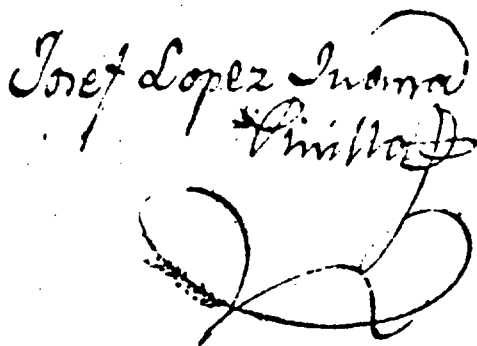 Josef Lopez Juana
Pinilla